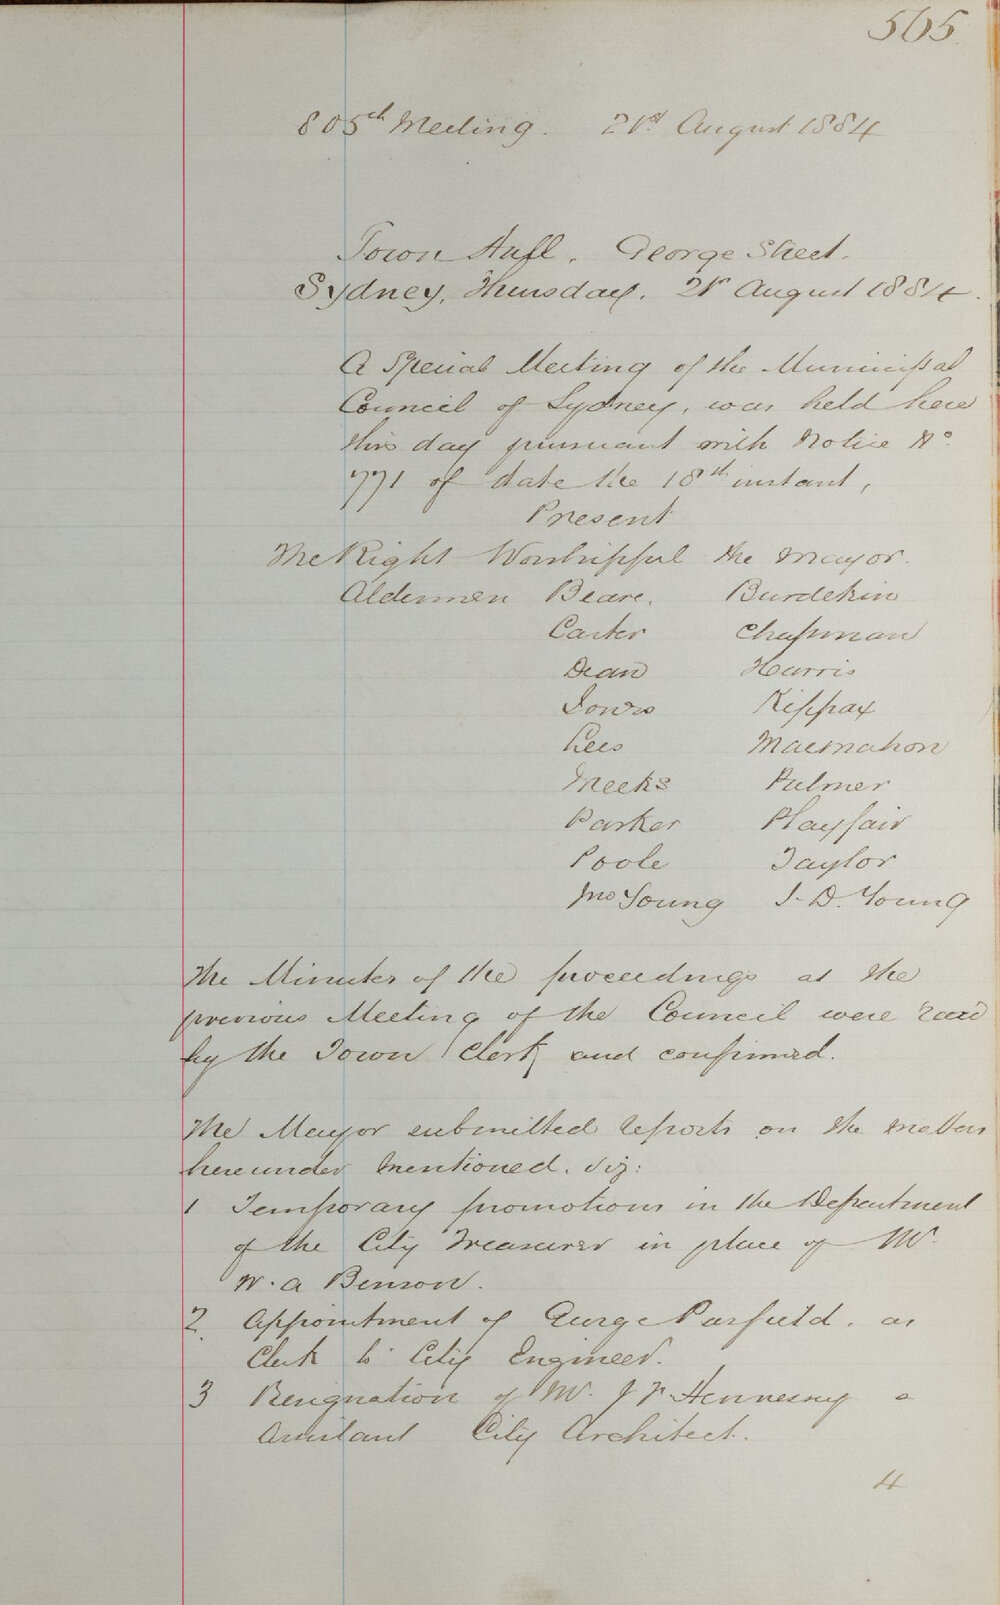 565
805th Meeting. 21st August 1884
Town Hall, George Street.
Sydney, Thursday, 21st August 1884.
A Special Meeting of the Municipal
Council of Sydney, was held here
this day pursuant with Notice No
771 of date the 18th instant,
Present
The Right Worshipful the Mayor.
Aldermen Beare, Burdekin
Carter Chapman
Dean Harris
Jones Kippax
Lees Macmahon
Meeks Palmer
Parker Playfair
Poole Taylor
Jno Young J. D. Young
The Minutes of the proceedings at the
previous Meeting of the Council were read
by the Town Clerk and confirmed.
The Mayor submitted reports on the matters
hereunder mentioned. viz:
1 Temporary promotions in the Department
of the City Treasurer in place of Mr.
W. A Benson.
2. Appointment of George Parfield. as
Clerk to City Engineer.
3 Resignation of Mr. J F Hennessy a
Assistant City Architect.
4